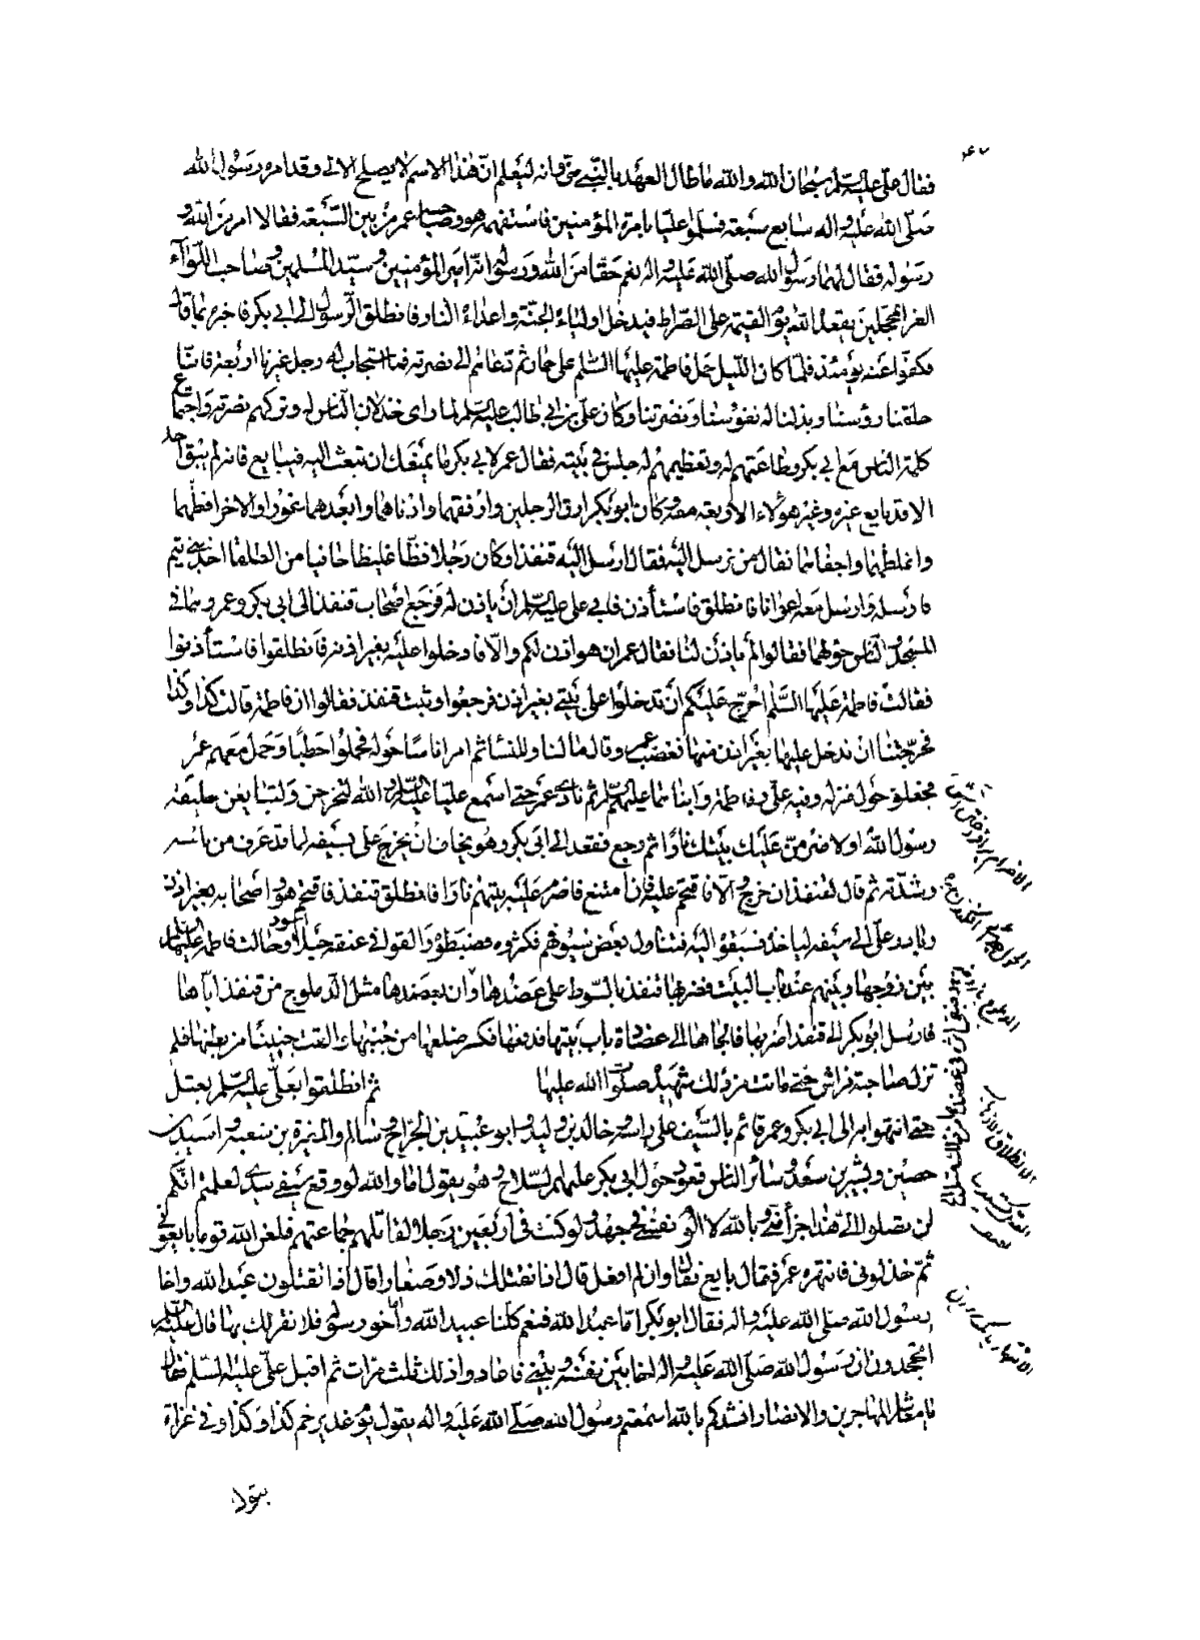 فقال علي عليه السلم سبحان الله والله ما طال العهد بالنبي مني وانه ليعلم ان هذا الاسم لا يصلح الا لي وقد امره رسول الله
صلى الله عليه واله سابع سبعة فسلموا علي بامرة المؤمنين فاستفهمه هو وصاحبه عمر من بين السبعة فقالا امر من الله و
رسوله فقال لهما رسول الله صلى الله عليه واله نعم حقا من الله ورسوله انه امير المؤمنين وسيد المسلمين وصاحب اللواء
الغر المحجلين يقعده الله يوم القيمة على الصراط فيدخل اولياءه الجنة واعداءه النار فانطلق الرسول الى ابي بكر فاخبره بما قال
فكفوا عنه يومئذ فلما كان الليل حمل فاطمة عليها السلم على حمار ثم دعاهم الى نصرته فما استجاب له رجل غيرنا اربعة فانا
حلقنا رؤسنا وبذلنا له نفوسنا ونصرتنا وكان علي بن ابي طالب عليه السلم لما راى خذلان الناس له وتركهم نصرته واجتماع
كلمة الناس مع ابي بكر وطاعتهم له وتعظيمهم له جلس في بيته فقال عمر لابي بكر ما يمنعك ان تبعث اليه فيبايع فانه لم يبق احد
الا قد بايع غيره وغير هؤلاء الاربعة معه وكان ابو بكر ارق الرجلين وارفقهما وادهاهما وابعدهما غورا والاخر افظهما
واغلظهما واجفاهما فقال من نرسل اليه فقال ارسل اليه قنفذا وكان رجلا فظا غليظا جافيا من الطلقاء احد بني تيم
فارسله وارسل معه اعوانا فانطلق فاستأذن فابى علي عليه السلم ان ياذن له فرجع اصحاب قنفذ الى ابي بكر وعمر وهما في
المسجد والناس حولهما فقالوا لم ياذن لنا فقال عمر ان هو اذن لكم والا فادخلوا عليه بغير اذنه فانطلقوا فاستأذنوا
فقالت فاطمة عليها السلم احرج عليكم ان تدخلوا على بيتي بغير اذن فرجعوا وثبت قنفذ فقالوا ان فاطمة قالت كذا وكذا
فحرجتنا ان ندخل عليها بغير اذن منها فغضب عمر وقال ما لنا وللنساء ثم امر اناسا حوله فحملوا حطبا وحمل معهم عمر
فجعلوه حول منزله وفيه علي وفاطمة وابناهما عليهم السلم ثم نادى عمر حتى اسمع عليا عليه السلم والله لتخرجن ولتبايعن خليفة
رسول الله او لاضرمن عليك بيتك نارا ثم رجع فقعد الى ابي بكر وهو يخاف ان يخرج علي بسيفه لما قد عرف من بأسه
وشدته ثم قال لقنفذ ان خرج والا فاقتحم عليه فان امتنع فاضرم عليه بيتهم نارا فانطلق قنفذ فاقتحم هو واصحابه بغير اذن
وبادر علي الى سيفه لياخذه فسبقوا اليه فتناول بعض سيوفهم فكثروه فضبطوه والقوا في عنقه حبلا اسود وحالت فاطمة عليها السلم
بين زوجها وبينهم عند باب البيت فضربها قنفذ بالسوط على عضدها وان بعضدها مثل الدملوج من قنفذ اياها
فارسل ابو بكر الى قنفذ اضربها فالجاها الى عضادة باب بيتها فدفعها فكسر ضلعها من جنبها والقت جنينا من بطنها فلم
تزل صاحبة فراش حتى ماتت من ذلك شهيدة صلوات الله عليها ثم انطلقوا بعلي عليه السلم يعتل
حتى انتهوا به الى ابي بكر وعمر قائم بالسيف على راسه وخالد بن وليد وابو عبيدة بن الجراح وسالم والمغيرة بن شعبة واسيد بن
حصين وبشير بن سعد وسائر الناس قعود حول ابي بكر عليهم السلاح وهو يقول اما والله لو وقع سيفي بيدي لعلمتم انكم
لن تصلوا الي هذا جزء مني وبالله لا الوم نفسي في جهد ولو كنت في اربعين رجلا لفرقت جماعتهم فلعن الله قوما بايعوني
ثم خذلوني فانتهره عمر فقال بايع فقال وان لم افعل قال اذا نقتلك ذلا وصغارا قال اذا تقتلون عبد الله واخا
رسول الله صلى الله عليه واله فقال ابو بكر اما عبد الله فنعم كلنا عبيد الله واما اخو رسوله فلا نقر لك بها قال عليه السلم
اتجحدون ان رسول الله صلى الله عليه واله اخا بين نفسه وبيني فاعادوا ذلك ثلث مرات ثم اقبل علي عليه السلم فقال
يا معاشر المهاجرين والانصار انشدكم بالله اسمعتم رسول الله صلى الله عليه واله يقول يوم غدير خم كذا وكذا وفي غزاة
يقول